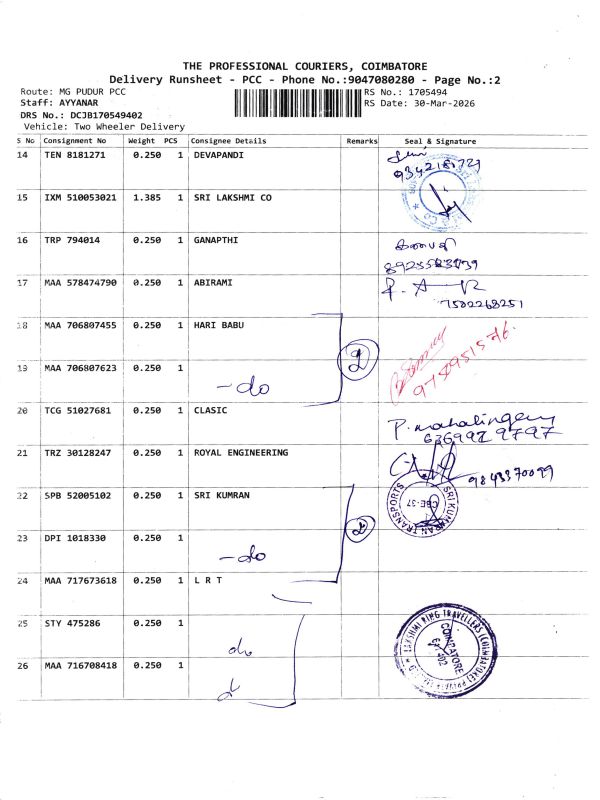 THE PROFESSIONAL COURIERS, COIMBATORE
Delivery Runsheet - PCC - Phone No.:9047080280 - Page No.:2
Route: MG PUDUR PCC
RS No.: 1705494
Staff: AYYANAR
RS Date: 30-Mar-2026
DRS No.: DCJB170549402
Vehicle: Two Wheeler Delivery
S No Consignment No Weight PCS Consignee Details Remarks Seal & Signature
14 TEN 8181271 0.250 1 DEVAPANDI
15 IXM 510053021 1.385 1 SRI LAKSHMI CO
16 TRP 794014 0.250 1 GANAPTHI
17 MAA 578474790 0.250 1 ABIRAMI
7502268251
18 MAA 706807455 0.250 1 HARI BABU
2
9750951576.
19 MAA 706807623 0.250 1
- do
20 TCG 51027681 0.250 1 CLASIC
P. mahalingam
21 TRZ 30128247 0.250 1 ROYAL ENGINEERING
9843370099
22 SPB 52005102 0.250 1 SRI KUMRAN
SRI KUMARAN TRANSPORTS
CBE-37
2
23 DPI 1018330 0.250 1
- do
24 MAA 717673618 0.250 1 L R T
25 STY 475286 0.250 1
do
LAKSHMI RING TRAVELLERS (COIMBATORE)
COIMBATORE
26 MAA 716708418 0.250 1